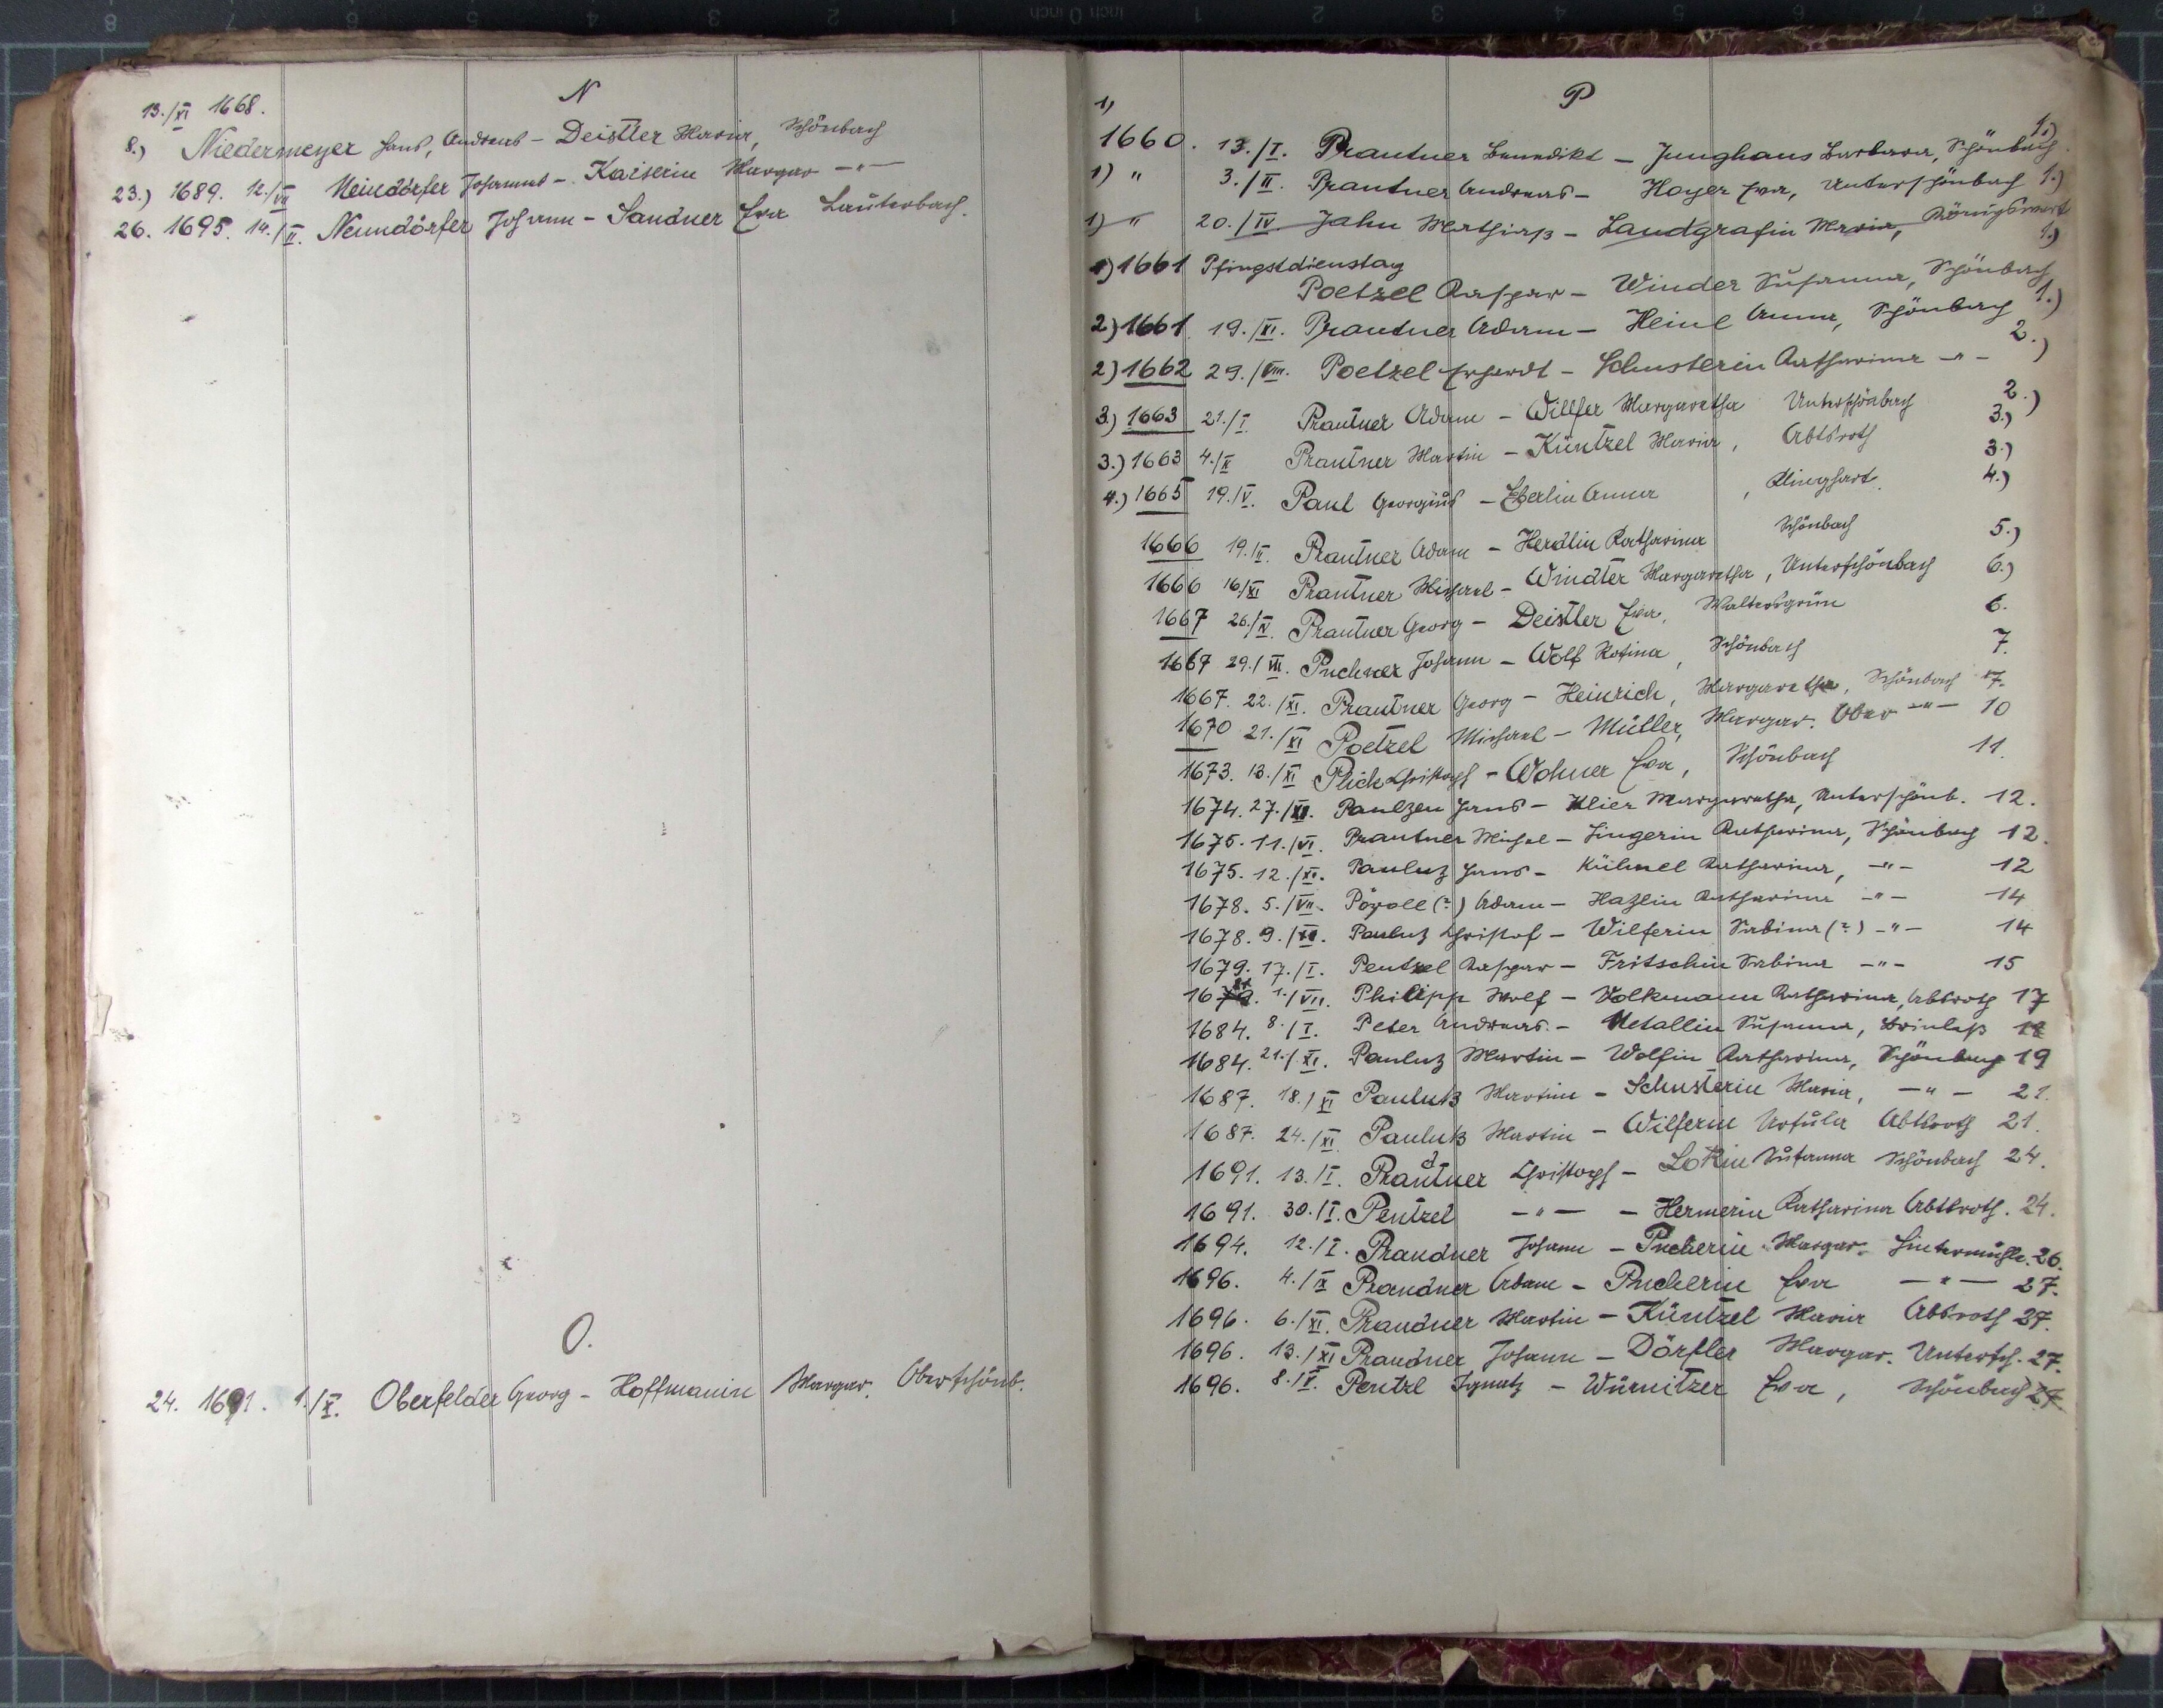 N
13./XI 1668.
8.) Niedermeyer Hans, Andreas – Deistler Maria, Schönbach
23.) 1689. 12./VII Neindörfer Johannes – Kaiserin Margar –"–
26. 1695. 14./II. Neundörfer Johann – Sandner Eva Lauterbach.
O.
24. 1691. 1./X. Oberfelder Georg – Hoffmanin Margar. Oberschönb.
P
1)
1660. 13./I. Prantner Benedikt – Junghans Barbara, Schönbach 1.)
1) " 3./II. Prantner Andreas – Hoyer Eva, Unterschönbach 1.)
1) " 20./IV. Jahn Mathiaß – Landgrafin Maria, Königswart
1) 1661 Pfingstdienstag 1.)
Poetzel Kaspar – Winder Susanna, Schönbach
2) 1661 19./XI. Prantner Adam – Heinl Anna, Schönbach 1.)
2) 1662 29./VIII. Poetzel Erhardt – Schusterin Katharina –"– 2.)
3.) 1663 21./I Prantner Adam – Willfer Margaretha Unterschönbach 2.)
3.) 1663 4./X Prantner Martin – Küntzel Maria, Abtsroth 3.)
3.)
4.) 1665 19./V. Paul Georgius – Eberlin Anna, Klinghart. 4.)
1666 19./II. Prantner Adam – Herdlin Katharina Schönbach 5.)
1666 16/XI Prantner Michael – Windter Margaretha, Unterschönbach 6.)
1667 26./IV. Prantner Georg – Deistler Eva, Waltersgrün 6.
1667 29./VII. Puchner Johann – Wolf Rosina, Schönbach 7.
1667. 22./XI. Prantner Georg – Heinrich, Margaretha, Schönbach 7.
1670 21./XI Poetzel Michael – Müller, Margar. Ober –"– 10
1673. 13./XI Plick Christoph – Wohner Eva, Schönbach 11.
1674. 27./XI. Paulzen Hans – Klier Margaretha, Unterschönb. 12.
1675. 11./VI. Prantner Michel – Singerin Katharina, Schönbach 12.
1675. 12./XI. Pauluz Hans – Kühnel Katharina, –"– 12
1678. 5./VII. Pöpoll (?) Adam – Hazlin Katharina –"– 14
1678. 9./XI. Pauluz Christof – Wilferin Sabina (?) –"– 14
1679. 17./I. Pentzel Kaspar – Fritschin Sabina –"– 15
1./VII. Philipp Wolf – Volkmann Katharina, Abtsroth 17
1684. 8./I. Peter Andreas. – Metallin Susanna, 18
1684. 21./XI. Pauluz Martin – Wolfin Katharina, Schönbach 19
1687. 18./XI Pauluß Martin – Schusterin Maria, –"– 21.
1687. 24./XI Pauluß Martin – Wilferin Ursula Abtsroth 21.
1691. 13./I. Prantner Christoph – Lokin Susanna Schönbach 24.
1691. 30./I. Pentzel –"– – Hermerin Katharina Abtsroth. 24.
1694. 12./I. Prandner Johann – Pucherin Margar. Hintermühle. 26.
1696. 4./IX Prandner Adam – Pucherin Eva –"– 27.
1696. 6./XI. Prandner Martin – Küntzel Maria Abtsroth 27.
1696. 13./XI Prandner Johann – Dörfler Margar. Untersch. 27.
1696. 8./V. Pentzl Ignatz – Würnitzer Eva, Schönbach 27